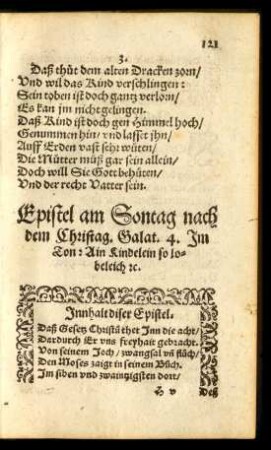 121
3.
Daß thůt dem alten Dracken zorn/
Vnd wil das Kind verschlingen:
Sein toben ist doch gantz verlorn/
Es kan jm nicht gelingen.
Daß Kind ist doch gen Himmel hoch/
Genummen hin/ vnd lasset jhn/
Auff Erden vast sehr wüten/
Die Můtter můß gar sein allein/
Doch will Sie Gott behüten/
Vnd der recht Vatter sein.
Epistel am Sontag nach
dem Christag. Galat. 4. Im
Ton: Ain Kindelein so lo-
beleich ꝛc.
Innhalt diser Epistel.
Daß Gesetz Christũ thet Inn die acht/
Dardurch Er vns freyhait gebracht.
Von seinem Joch/ zwangsal vñ flůch/
Den Moses zaigt in seinem Bůch.
Im siben vnd zwaintzigsten dort/
H v
Deß